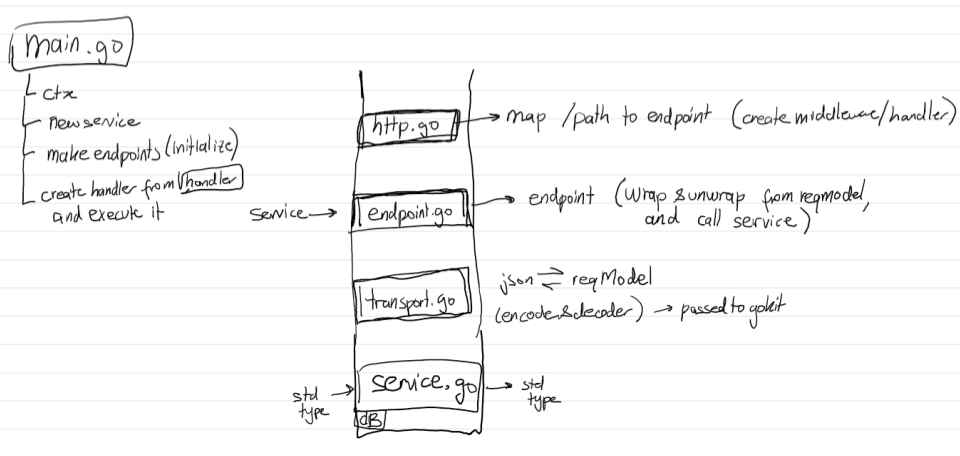 main.go
ctx
new service
make endpoints (initialize)
create handler from handler
and execute it
http.go → map /path to endpoint (create middlewae/handler)
service → endpoint.go → endpoint (wrap & unwrap from reqmodel,
and call service)
transport.go
json ⇄ reqModel
(encode & decoder) → passed to gokit
std type → service.go → std type
dB